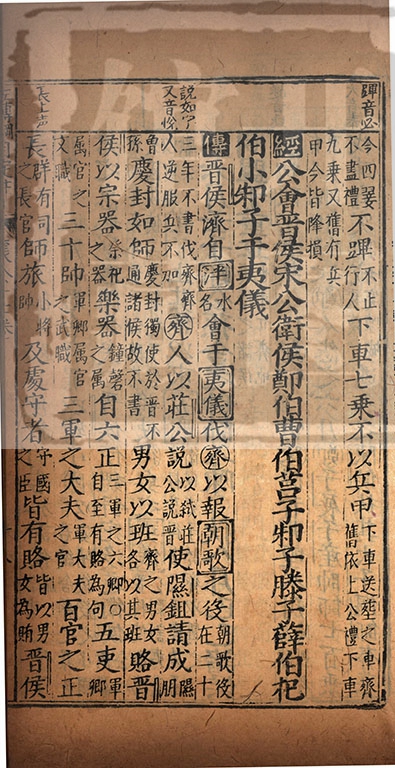 蹕音必
今四翣不盡禮不蹕不止行人下車七乘不以兵甲下車送葬之車齊舊依上公禮下車
九乘又舊有兵甲今皆降損
經公會晉侯宋公衛侯鄭伯曹伯莒子邾子滕子薛伯杞
伯小邾子于夷儀
傳晉侯濟自泮水名會于夷儀伐齊以報朝歌之役朝歌役在二十
說如字又音悅
三年不書伐齊齊人逆服兵不加齊人以莊公說以弒莊公說晉使隰鉏請成隰朋
曾孫慶封如師慶封獨使於晉不通諸侯故不書男女以班齊之男女各以其班賂晉
侯以宗器祭祀之器樂器鐘磬之屬自六正三軍之六卿○自至有賂為句五吏軍卿
屬官文職三十帥軍卿屬官之武職三軍之大夫軍大夫之官百官之正
長上聲
長群有司之長官師旅小將帥及處守者守國之臣皆有賂皆以男女為賂晉侯